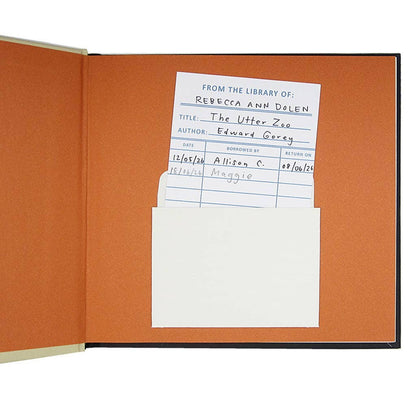 FROM THE LIBRARY OF:
REBECCA ANN DOLEN
TITLE: The Utter Zoo
AUTHOR: Edward Gorey
DATE BORROWED BY RETURN ON
12/05/26 Allison C. 08/06/26
15/06/26 Maggie